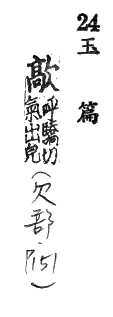 24 玉篇
歊 呼驕切
氣出皃
(欠部·P151)